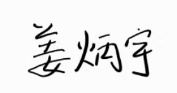 姜炳宇